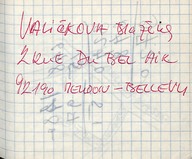 VALIČKOVA Blažena
2 RUE DU BEL AIR
92190 MEUDON - BELLEVUE